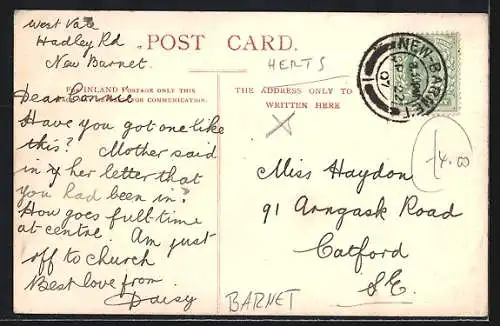 West Vale
Hadley Rd
New Barnet.
POST CARD.
HERTS
NEW-BARNET
SP 22
07
FOR INLAND POSTAGE ONLY THIS
FOR COMMUNICATION.
THE ADDRESS ONLY TO
WRITTEN HERE
Dear Connie
Have you got one like
this? Mother said
in her letter that
you had been in?
How goes full time
at centre. Am just
off to church
Best love from
Daisy
Miss Haydon
91 Arngask Road
Catford
S.E.
BARNET